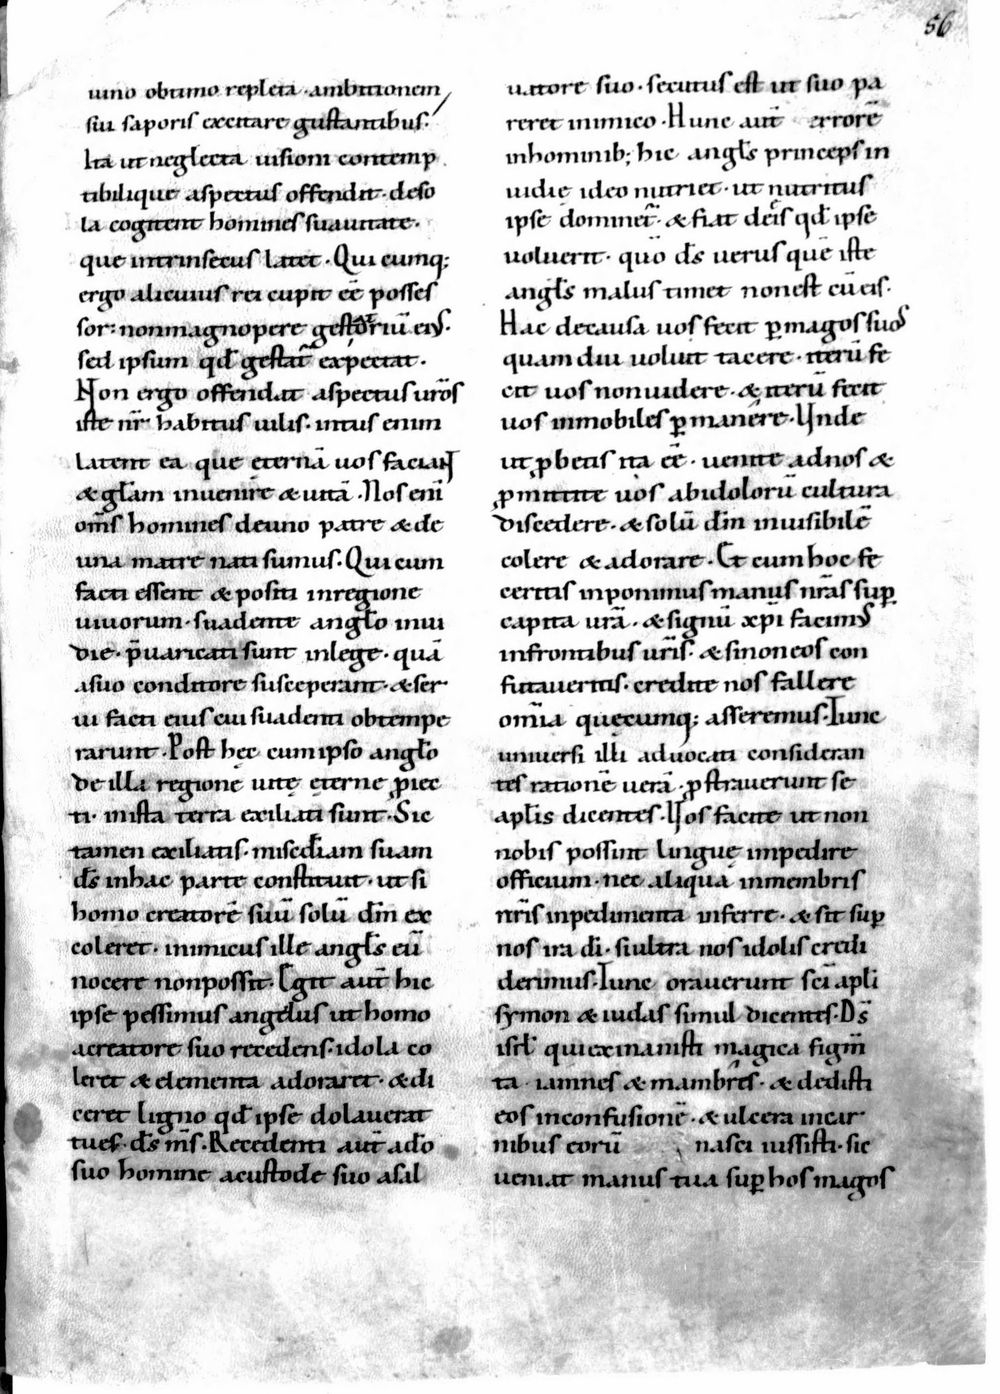 56
uino obtimo repleta · ambitionem
sui saporis excitare gustantibus.
Ita ut neglecta uisioni contemp
tibilique aspectus offendit · deso
la cogitent homines suauitate ·
que intrinsecus latet · Qui cumq;
ergo alicuius rei cupit eē posses
sor: non magnopere gestoriū eiꝰ.
sed ipsum qđ gestat̄ expectat ·
Non ergo offendat aspectus ur̄os
iste nr̄ habitus uilis · intus enim
latent ea que ęternā uos faciant
& gł̄am inuenire & uitā · Nos enī
om̄s homines de uno patre & de
una matre nati sumus. Qui cum
facti essent & positi in regione
uiuorum · suadente angł̄o inui
die · p̄uaricati sunt in lege · quā
a suo conditore susceperant · & ser
ui facti eius cui suadenti obtempe
rarunt · Post hęc cum ipso angł̄o
de illa regione uitę ęterne ꝓiec
ti · in ista terra exiliati sunt · Sic
tamen exiliatis · misedi̅am suam
d̄s in hac parte constituit · ut si
homo creatorē suū solū dn̄m ex
coleret · inimicus ille angł̄s eū
nocere non possit · Egit aut̄ hic
ipse pessimus angelus ut homo
a creatore suo recedens · idola co
leret & elementa adoraret · & di
ceret ligno qđ ipse dolauerat
tu es · d̄s m̄s · Recedenti aut̄ a d̄o
suo homine a custode suo a sal
uatore suo · secutus est ut suo pa
reret inimico · Hunc aut̄ errorē
in hominib; hic angł̄s princeps in
uidię ideo nutriet · ut nutritus
ipse dominet̄ · & fiat de iis qđ ipse
uoluerit · quō d̄s uerus quē iste
angł̄s malus timet non est cū eis.
Hac de causa uos fecit ꝑ magos suoˢ
quam diu uoluit tacere · iterū fe
cit uos non uidere · & iterū fecit
uos inmobiles ꝑmanere · Unde
ut ꝓbetis ita eē · uenite ad nos &
ꝓmittite uos ab idolorū cultura
discedere · & solū dn̄m inuisibilē
colere & adorare · Et cum hoc fe
ceritis inponimus manus nr̄as suꝑ
capita ur̄a · & signū xp̄i facimꝰ
in frontibus ur̄is · & si non eos con
futaueritis · credite nos fallere
omīa quęcumq; asseremus · Tunc
uniuersi illi aduocati consideran
tes rationē uerā · ꝓstrauerunt se
apł̄is dicentes · Uos facite ut non
nobis possint linguę impedire
officium · nec aliqua in membris
nr̄is inpedimenta inferre · & sit suꝑ
nos ira dī · si ultra nos idolis credi
derimus · Tunc orauerunt scī apłi
symon & iudas simul dicentes · D̄s
isrł qui exinanisti magica figm̄
ta · iamnes & mambres · & dedisti
eos in confusionē · & ulcera in car
nibus eorū nasci iussisti · sic
ueniat manus tua suꝑ hos magos